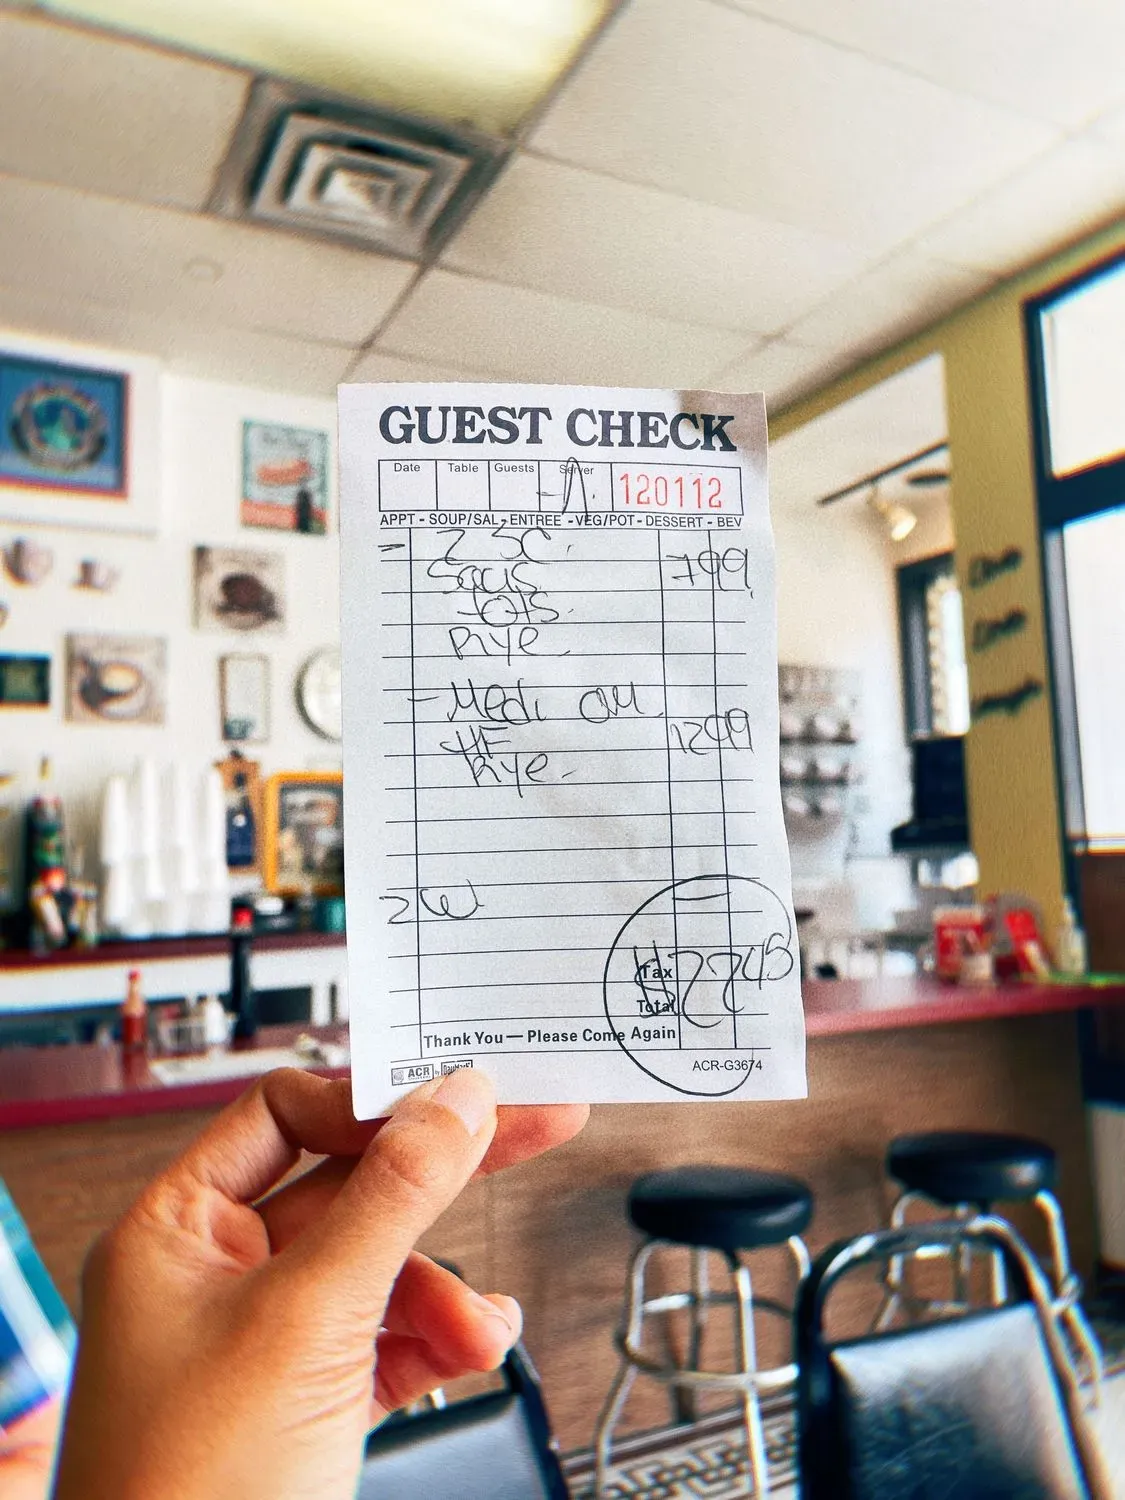 GUEST CHECK
Date Table Guests Server
120112
APPT - SOUP/SAL - ENTREE - VEG/POT - DESSERT - BEV
- 2 SC.
Saus 799
tots.
Rye
- Medi OM
HF 1299
Rye -
2 W
Tax $22 45
Total
Thank You — Please Come Again
ACR by DayMark ACR-G3674